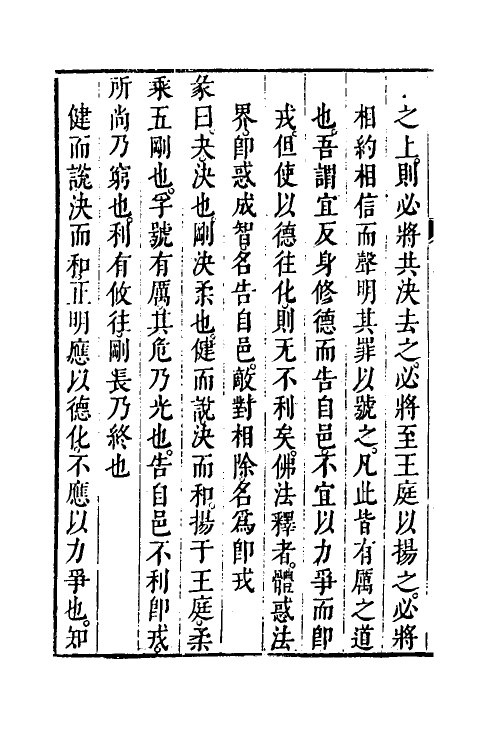 之上。則必將共決去之。必將至王庭以揚之。必將
相約相信而聲明其罪以號之。凡此皆有厲之道
也。吾謂宜反身修德而告自邑。不宜以力爭而卽
戎。但使以德往化。則无不利矣。佛法釋者。體惑法
界。卽惑成智。名告自邑。敵對相除。名爲卽戎
彖曰。夬。決也。剛決柔也。健而說。決而和。揚于王庭。柔
乘五剛也。孚號有厲。其危乃光也。告自邑不利卽戎。
所尚乃窮也。利有攸往。剛長乃終也
健而說。決而和。正明應以德化。不應以力爭也。知